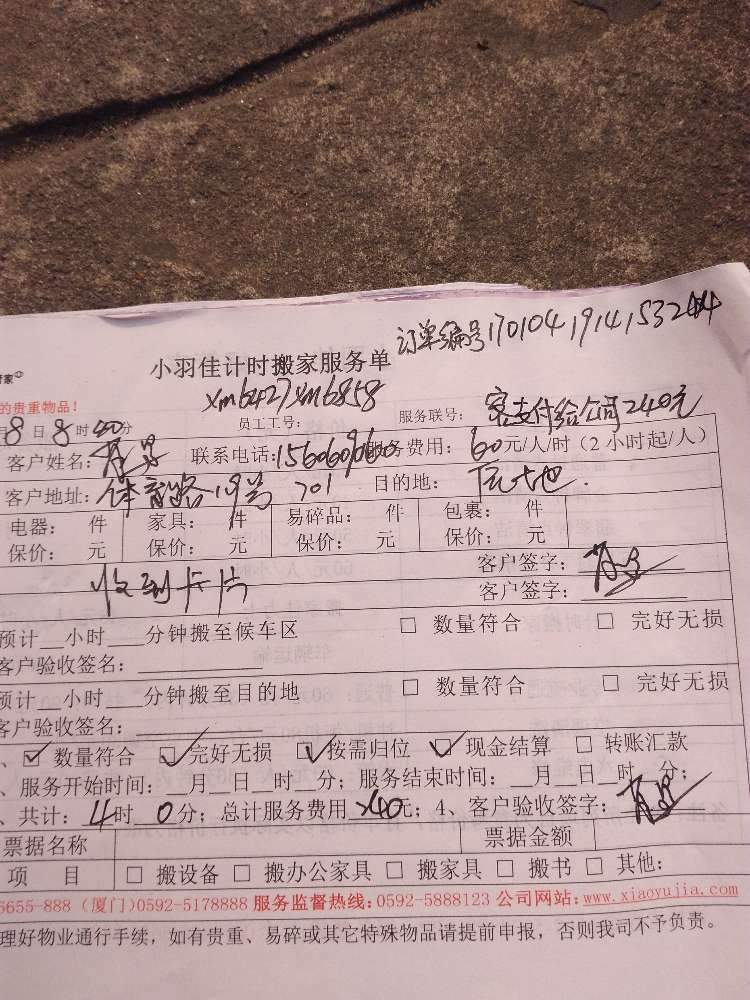 订单编号1701041914153244
小羽佳计时搬家服务单
家
的贵重物品!
xm6427 xm6858
员工工号: 服务联号: 客支付给公司240元
月8日8时00分
客户姓名: 联系电话: 服务费用: 60元/人/时 (2小时起/人)
客户地址: 体育路19号 701 目的地:
电器: 件 家具: 件 易碎品: 件 包裹: 件
保价: 元 保价: 元 保价: 元 保价: 元
客户签字:
收到卡片 客户签字:
预计__小时___分钟搬至候车区 □ 数量符合 □ 完好无损
客户验收签名:
预计__小时___分钟搬至目的地 □ 数量符合 □ 完好无损
客户验收签名:
、☑ 数量符合 ☑ 完好无损 ☑ 按需归位 ☑ 现金结算 □ 转账汇款
、服务开始时间:__月__日__时__分; 服务结束时间:__月__日__时__分;
、共计: 4时 0分; 总计服务费用 240元; 4、客户验收签字:
票据名称 票据金额
项 目 □ 搬设备 □ 搬办公家具 □ 搬家具 □ 搬书 □ 其他:
6655-888 (厦门)0592-5178888 服务监督热线:0592-5888123 公司网站:www.xiaoyujia.com
理好物业通行手续,如有贵重、易碎或其它特殊物品请提前申报,否则我司不予负责。